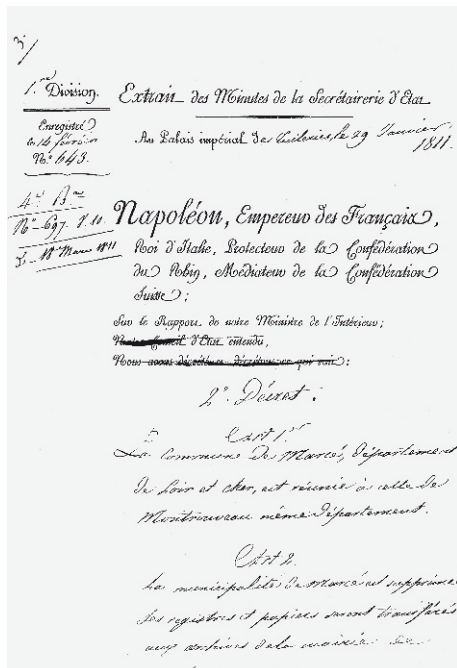 3
1.re Division.
Extrait des Minutes de la Secrétairerie d'Etat
Enregistré
le 14 février
N.o 643.
Au Palais impérial des Tuileries, le 29 Janvier
1811.
4.e B.au
N.o 697.
Le Mars 1811
Napoléon, Empereur des Français,
Roi d'Italie, Protecteur de la Confédération
du Rhin, Médiateur de la Confédération
Suisse;
Sur le Rapport de notre Ministre de l'Intérieur;
Notre Conseil d'Etat entendu,
Nous avons décrété et décrétons ce qui suit:
2.e Décret:
Art 1.er
La Commune de Marcé, département
de Loir et cher, est réunie à celle de
Montrouveau même département.
Art 2.
La municipalité de Marcé est supprimée
Ses registres et papiers seront transférés
aux archives de la mairie de